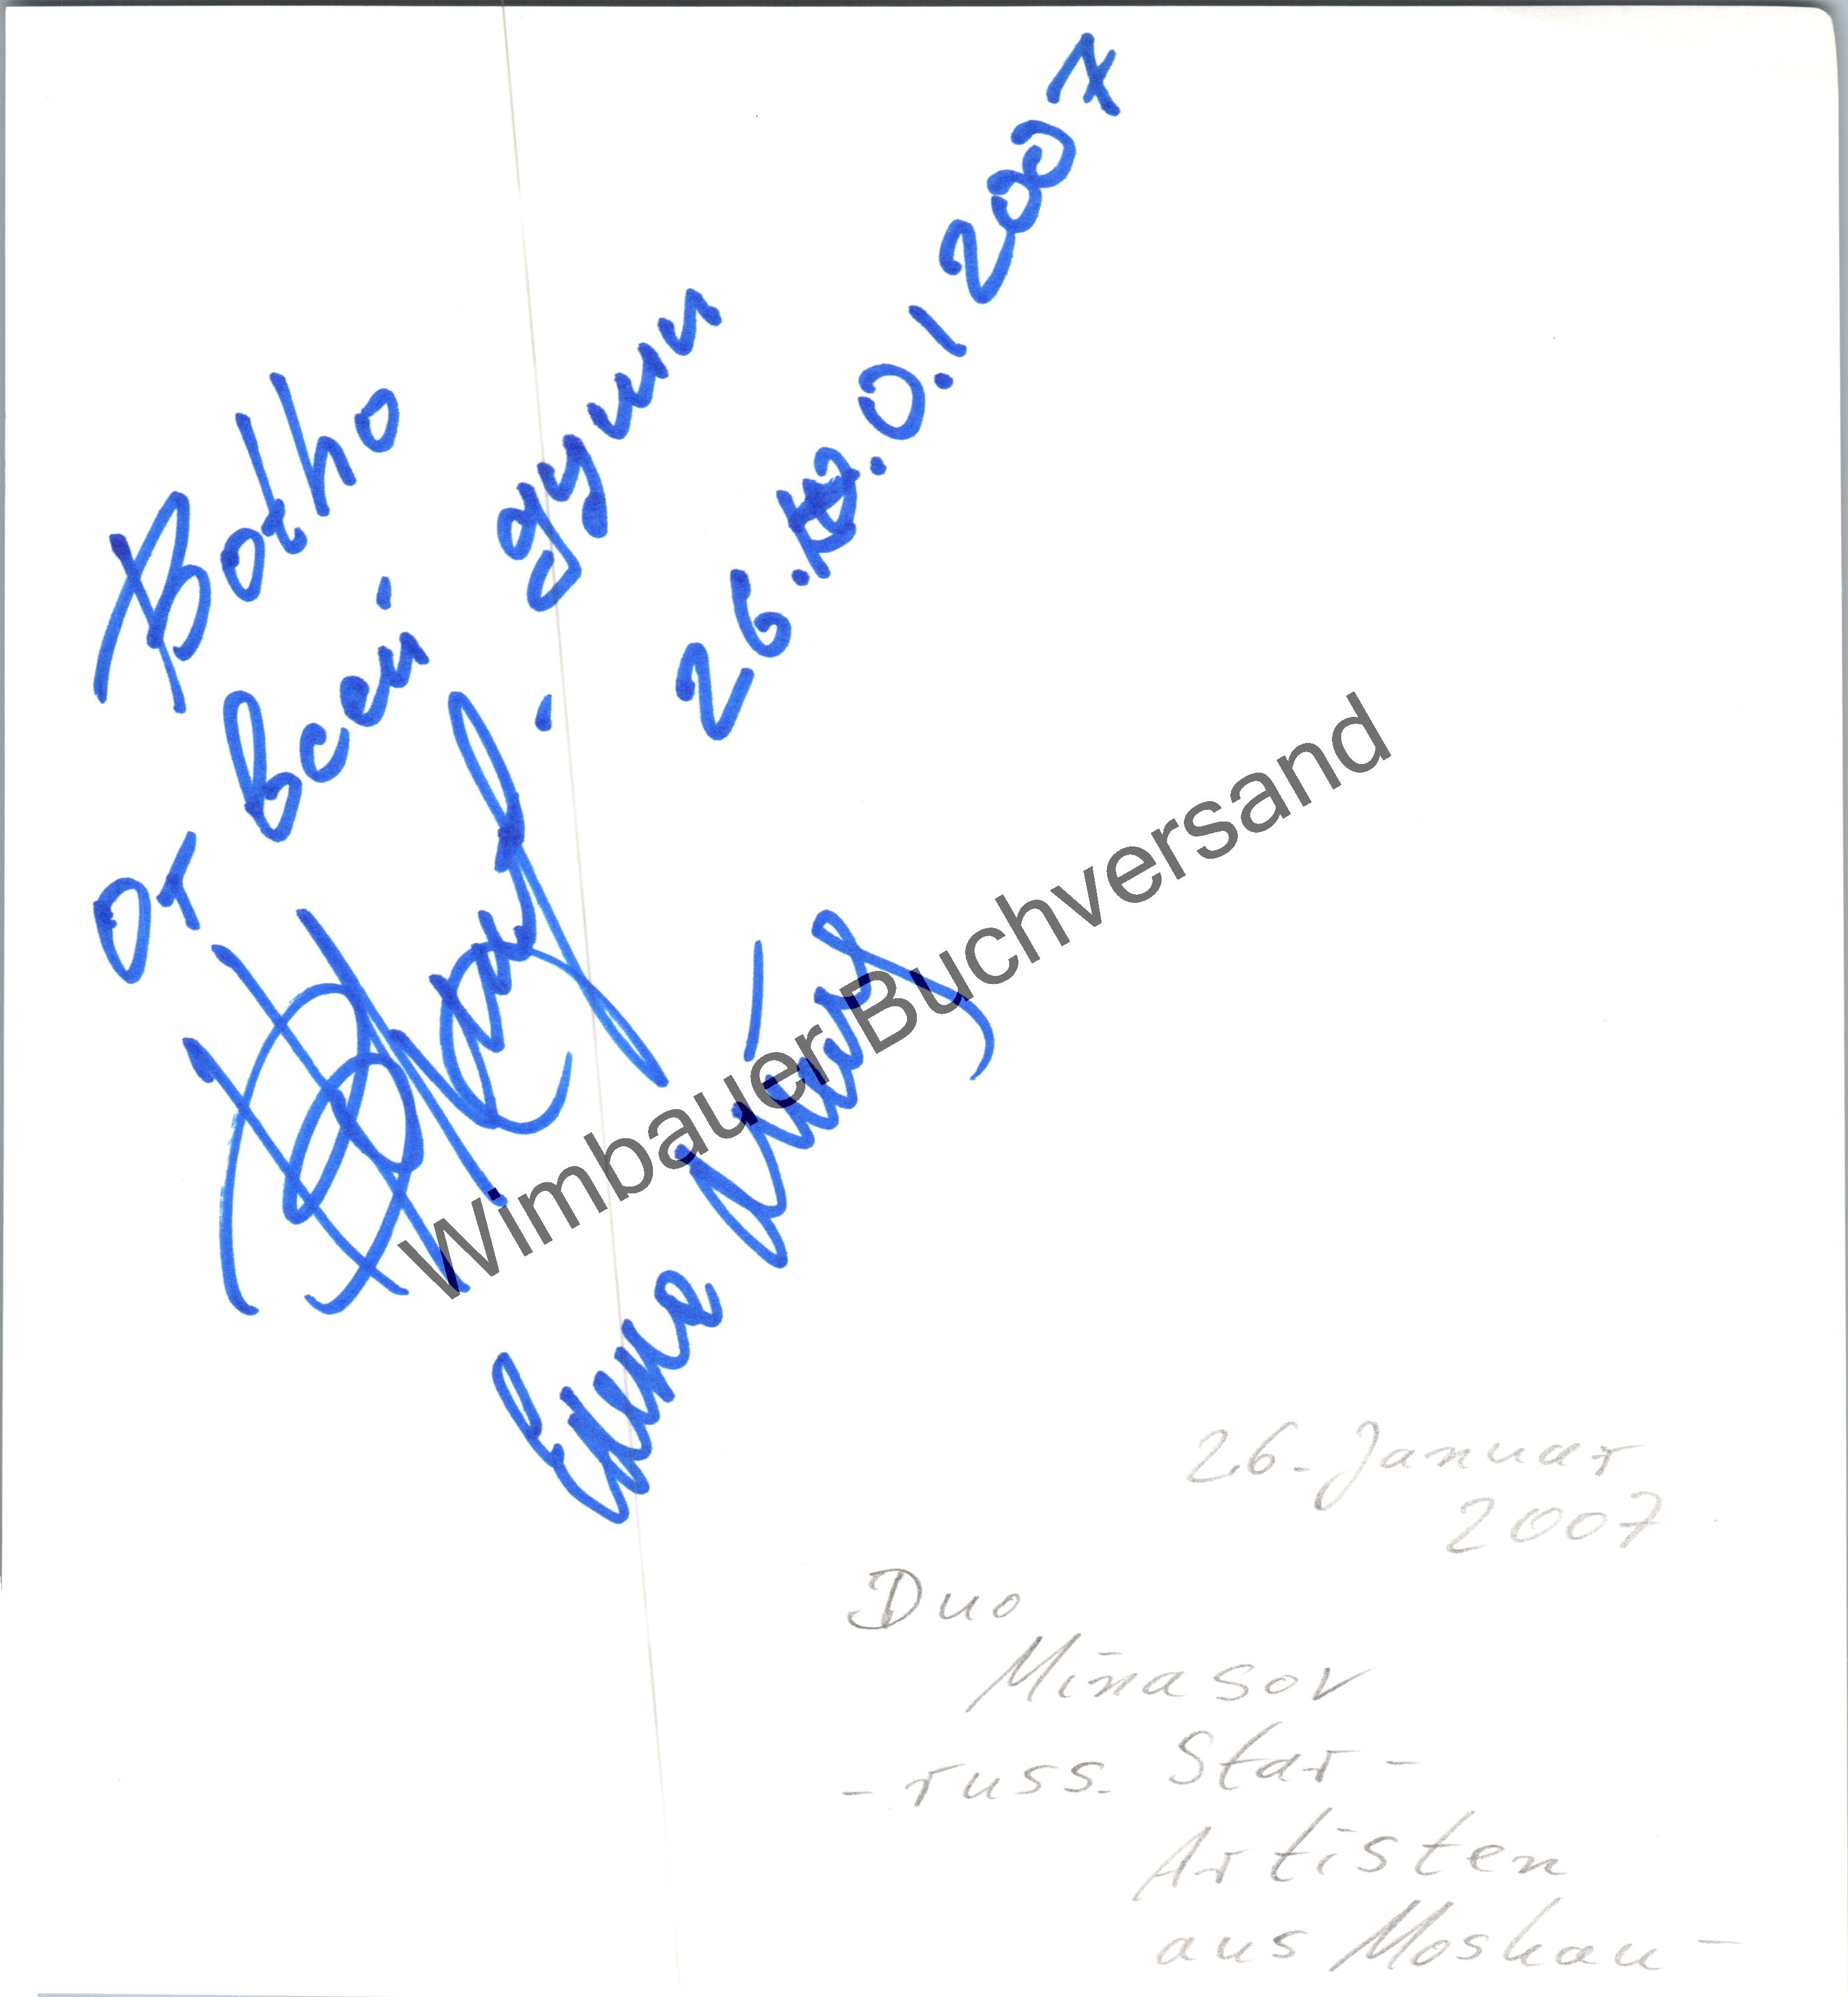 Botho
От всей души
26. .0.1 2007
Wimbauer Buchversand
26. Januar
2007
Duo
Minasov
- russ. Star -
Artisten
aus Moskau -